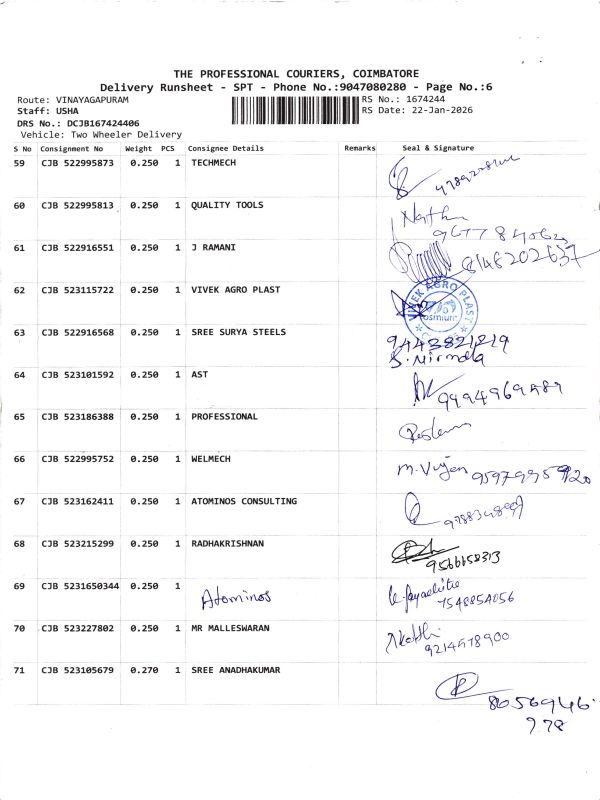 THE PROFESSIONAL COURIERS, COIMBATORE
Delivery Runsheet - SPT - Phone No.:9047080280 - Page No.:6
Route: VINAYAGAPURAM RS No.: 1674244
Staff: USHA RS Date: 22-Jan-2026
DRS No.: DCJB167424406
Vehicle: Two Wheeler Delivery
S No Consignment No Weight PCS Consignee Details Remarks Seal & Signature
59 CJB 522995873 0.250 1 TECHMECH
60 CJB 522995813 0.250 1 QUALITY TOOLS
61 CJB 522916551 0.250 1 J RAMANI 8148202637
62 CJB 523115722 0.250 1 VIVEK AGRO PLAST VIVEK AGRO PLAST
63 CJB 522916568 0.250 1 SREE SURYA STEELS 9443821219
S. Nirmala
64 CJB 523101592 0.250 1 AST
65 CJB 523186388 0.250 1 PROFESSIONAL
66 CJB 522995752 0.250 1 WELMECH
67 CJB 523162411 0.250 1 ATOMINOS CONSULTING
68 CJB 523215299 0.250 1 RADHAKRISHNAN 9566658313
69 CJB 5231650344 0.250 1 Atominos 7548854056
70 CJB 523227802 0.250 1 MR MALLESWARAN 9214578900
71 CJB 523105679 0.270 1 SREE ANADHAKUMAR
8056946
778